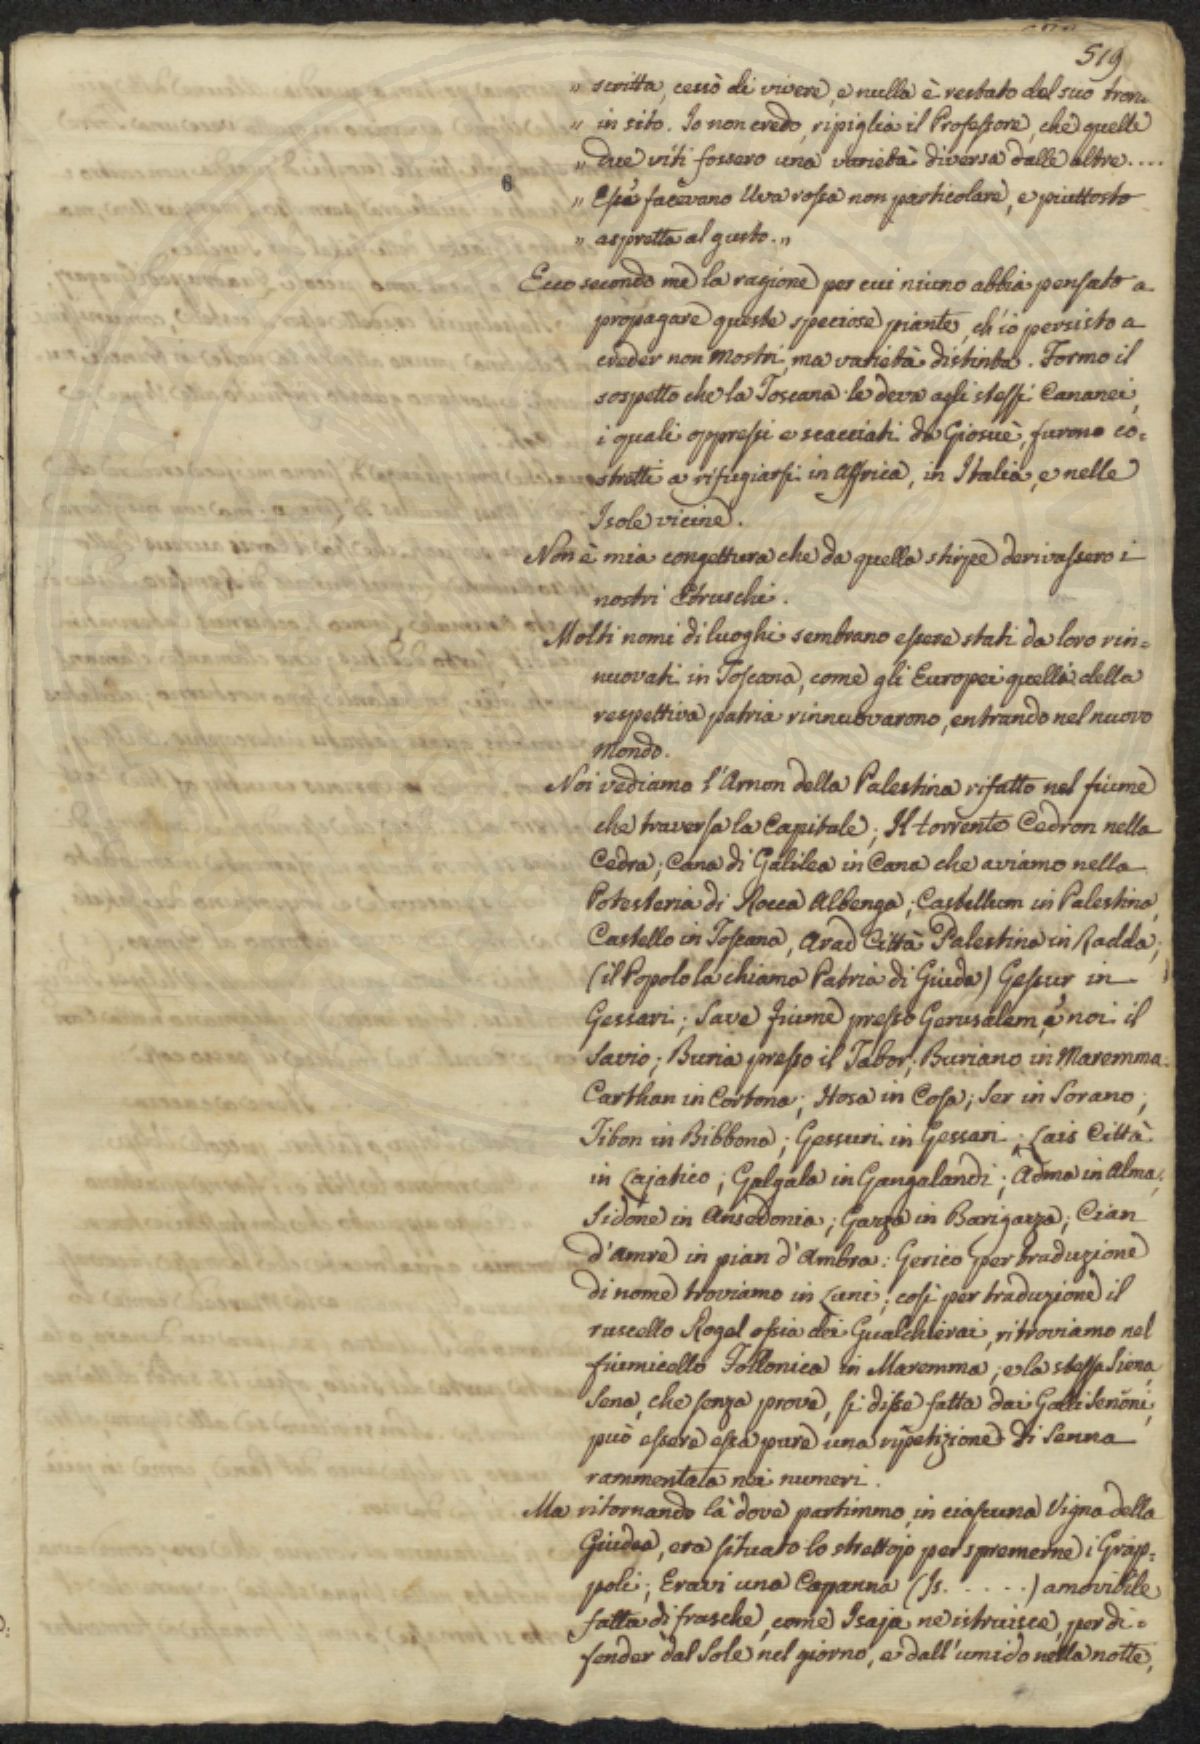 519
„ scritta, cessò di vivere, e nulla è restato del suo tron-
„ in sito. Io non credo, ripiglia il Professore, che quelle
„ due viti fossero una varietà diversa dalle altre....
„ Esse facevano Uva rossa non particolare, e piuttosto
„ aspretta al gusto. „
Ecco secondo me la ragione per cui niuno abbia pensato a
propagare queste speciose piante, ch'io persisto a
creder non mostri, ma varietà distinta. Formo il
sospetto che la Toscana le deva agli stessi Cananei,
i quali oppressi e scacciati da Giosuè, furono co-
stretti a rifugiarsi in Affrica, in Italia, e nelle
Isole vicine.
Non è mia congettura che da quella stirpe derivassero i
nostri Etruschi.
Molti nomi di luoghi sembrano essere stati da loro rin-
nuovati in Toscana, come gli Europei quelli della
respettiva patria rinnuovarono, entrando nel nuovo
Mondo.
Noi vediamo l'Arnon della Palestina rifatto nel fiume
che traversa la Capitale; Il torrente Cedron nella
Cedra; Cana di Galilea in Cana che aviamo nella
Potesteria di Rocca Albenga; Castellum in Palestina,
Castello in Toscana, Arad Città Palestina in Radda;
(il Popolo la chiama Patria di Giuda) Gessur in
Gessari; Save fiume presso Gerusalem, e noi il
Savio; Buria presso il Tabor; Buriano in Maremma.
Carthan in Cortona; Hosa in Cosa; Ser in Sorano;
Tibon in Bibbona; Gessuri in Gessari; Lais Città
in Lajatico; Galgala in Gangalandi; Adma in Alma;
Sidone in Ansedonia; Gazza in Barigazza; Cian
d'Amre in pian d'Ambra: Gerico per traduzione
di nome troviamo in Luni; così per traduzione il
ruscello Rogel ossia dei Gualchierai, ritroviamo nel
fiumicello Follonica in Maremma; e la stessa Siena,
Sena, che senza prove, si disse fatta dai Galli Senoni,
può essere essa pure una ripetizione di Senna
rammentata nei numeri.
Ma ritornando là dove partimmo, in ciascuna Vigna della
Giudea, era situato lo strettojo per spremerne i Grap-
poli; Eravi una Capanna (Is. . . . . .) amovibile
fatta di frasche, come Isaja ne istruisce, per di-
fender dal Sole nel giorno, e dall'umido nella notte,